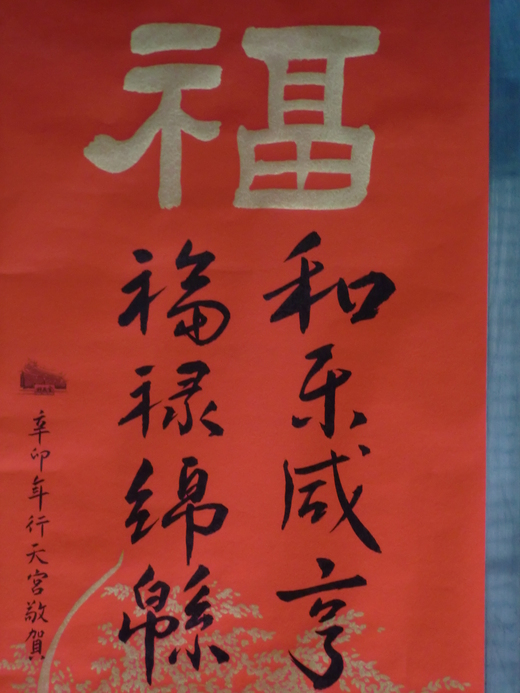 福
和乐咸亨
福禄綿緜
辛卯年行天宮敬賀